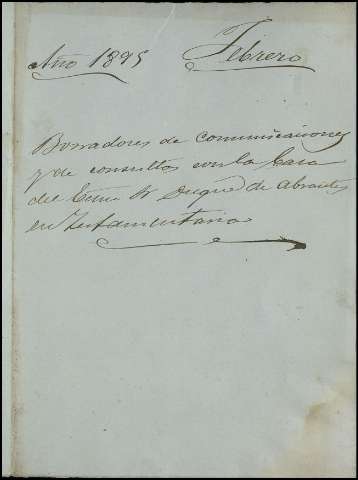 Año 1895 Febrero
Borradores de comunicaciones
y de consultas con la Casa
del Excmo Sr Duque de Abrantes
en Testamentaria